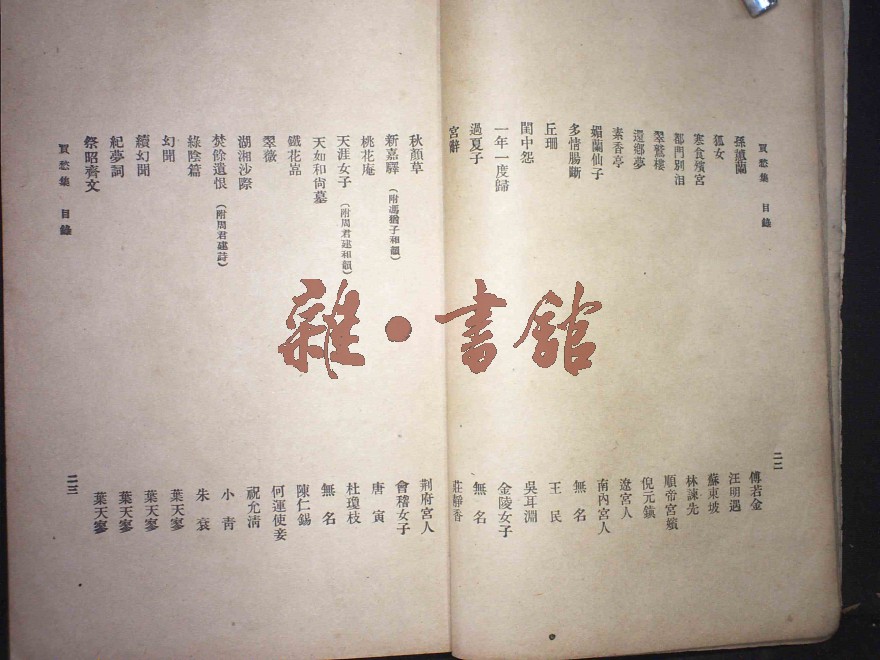 買愁集 目錄 二二
孫蕙蘭 傅若金
狐女 汪明遇
寒食殯宮 蘇東坡
都門別泪 林諫先
翠鴛樓 順帝宮嬪
還鄉夢 倪元鎮
素香亭 遼宮人
媚蘭仙子 南內宮人
多情腸斷 無名
丘珊 王民
閨中怨 吳耳淵
一年一度歸 金陵女子
過夏子 無名
宮辭 莊靜香
秋顏草 荆府宮人
新嘉驛(附馮猶子和韻) 會稽女子
桃花庵 唐寅
天涯女子(附周君建和韻) 杜瓊枝
天如和尚墓 無名
鐵花嵓 陳仁錫
翠薇 何運使妾
湖湘沙際 祝允清
焚餘遺恨(附周君建詩) 小青
綠陰篇 朱衮
幻聞 葉天寥
續幻聞 葉天寥
紀夢詞 葉天寥
祭昭齊文 葉天寥
買愁集 目錄 二三
雜·書館